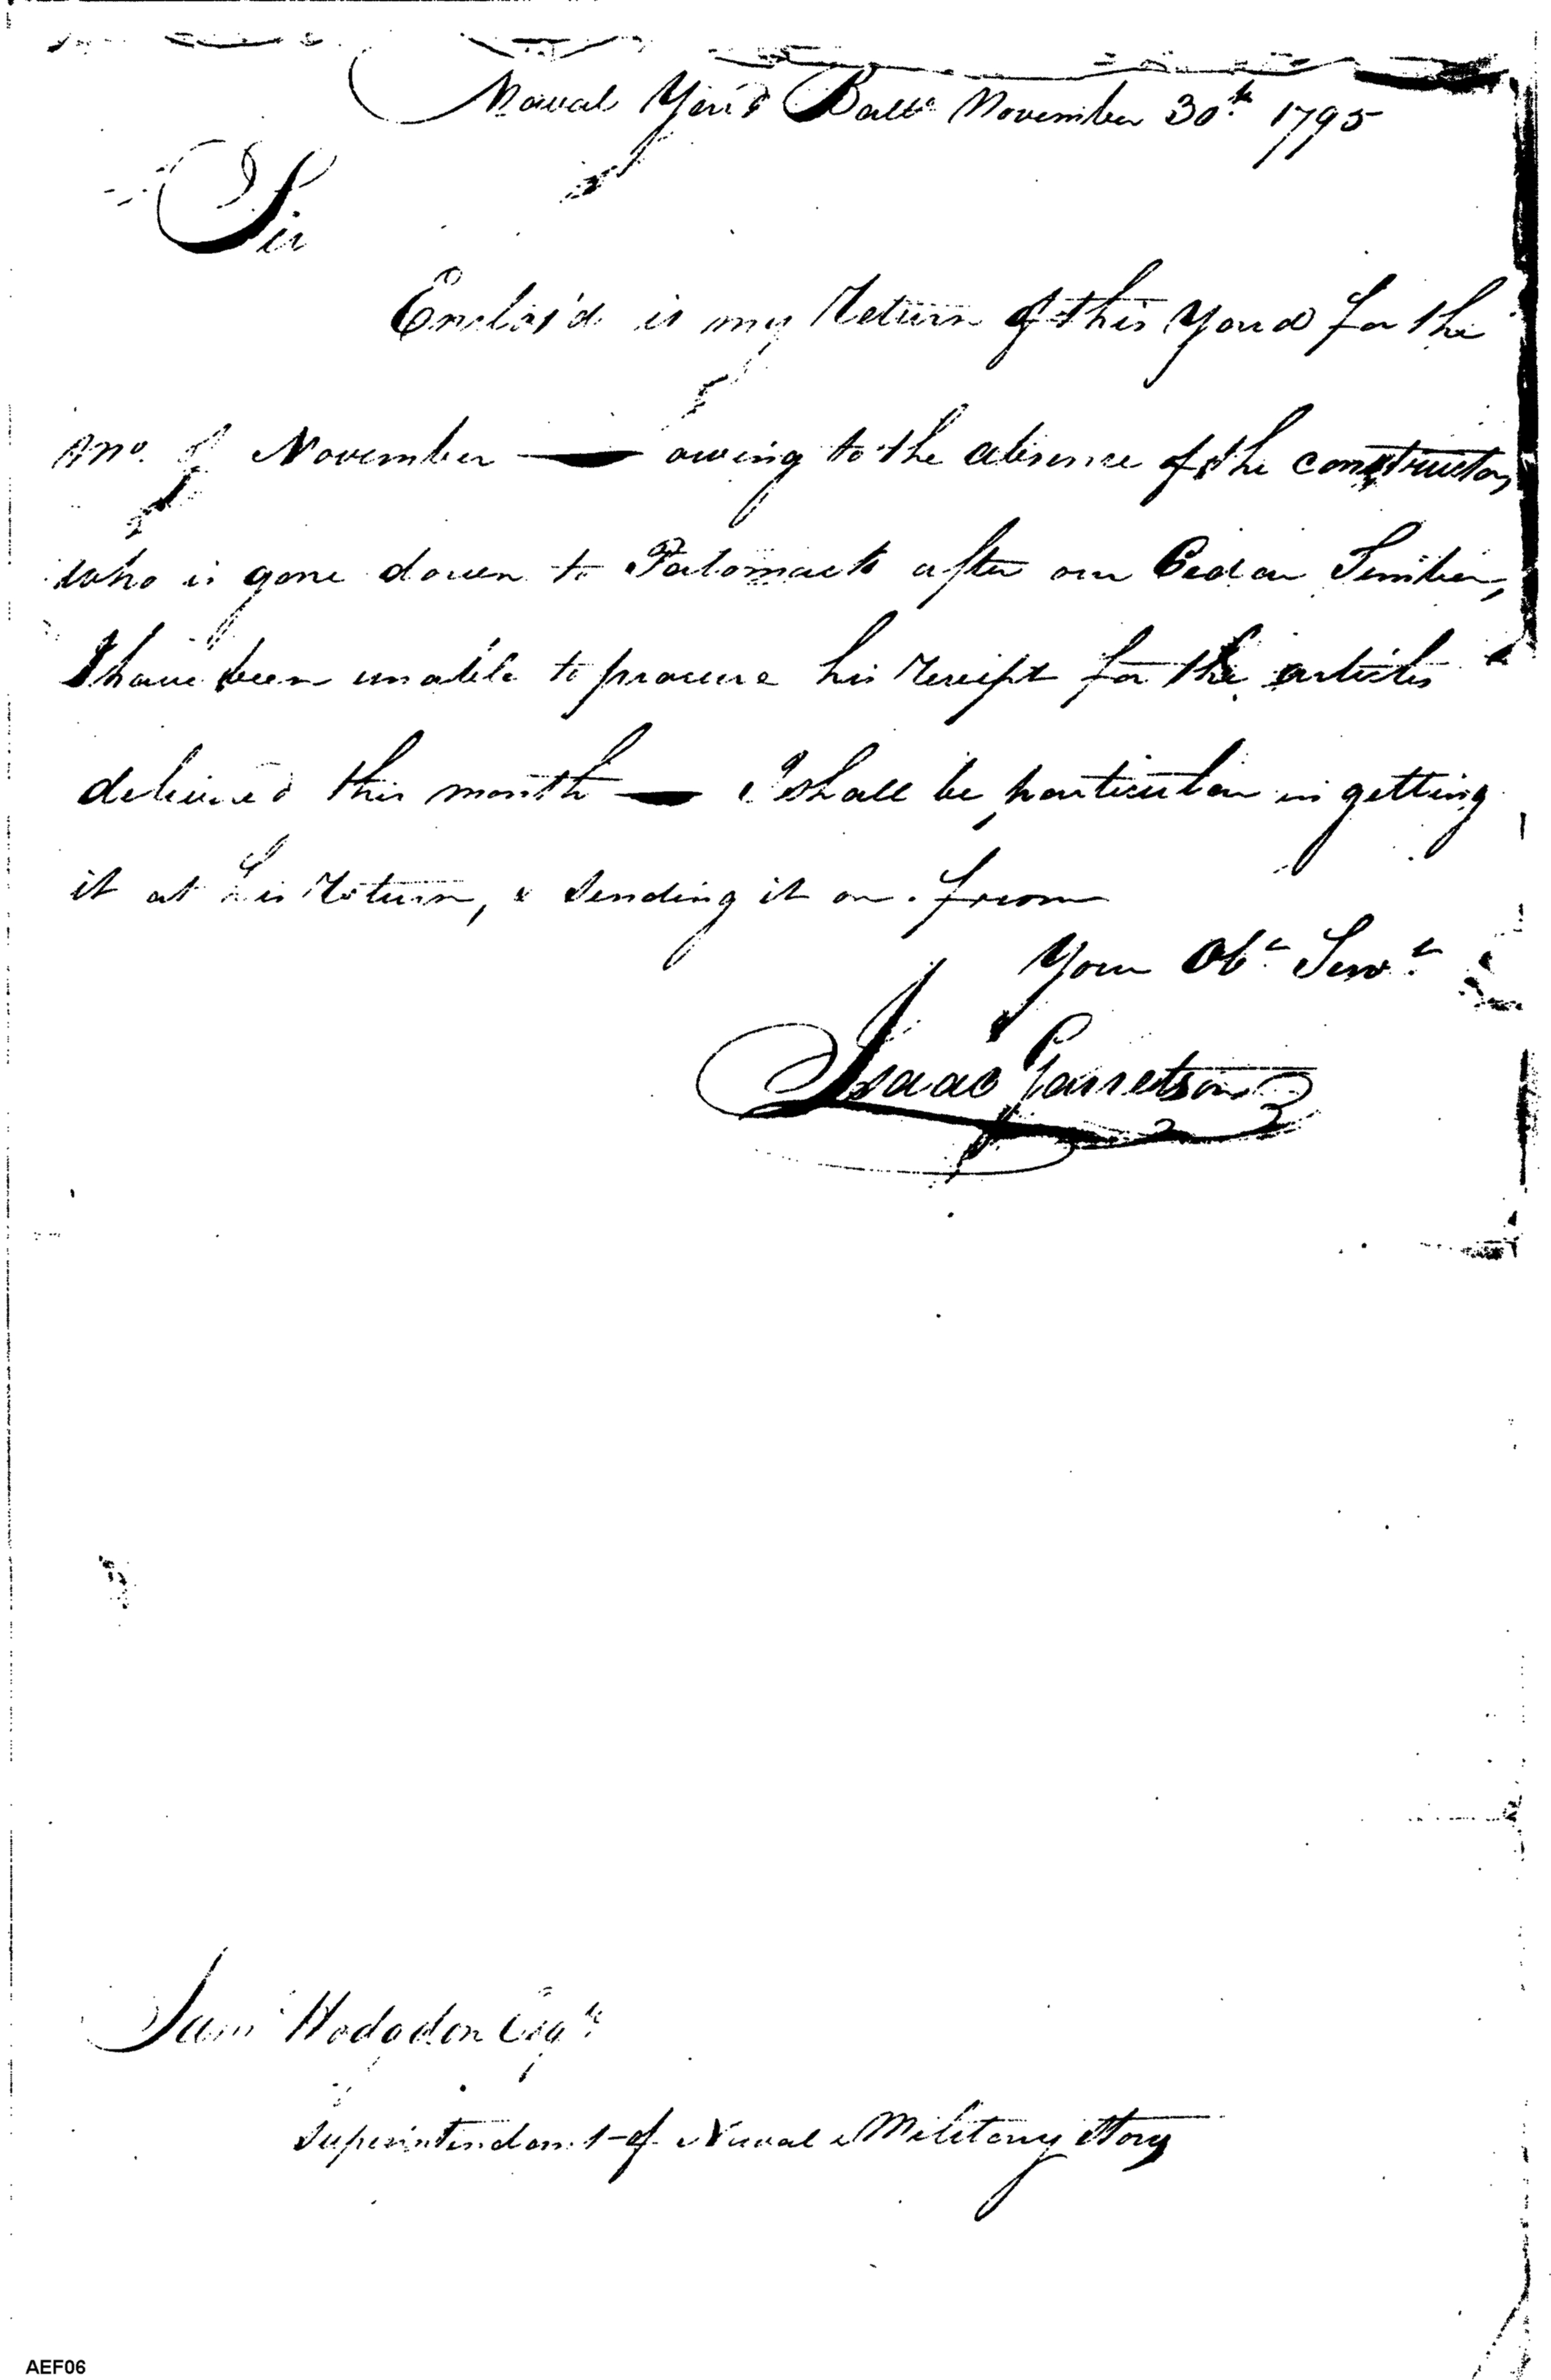 Naval Yard Balto November 30th 1795
Sir
Enclos'd is my Return of this Yard for the
mo. of November — owing to the absence of the constructor,
who is gone down to Patomack after our Cedar Timber,
I have been unable to procure his receipt for the articles
delivered this month — I shall be particular in getting
it at his Return, & sending it on. from
Your Obt Servt
Isaac Garretson
Saml Hodgdon Esqr
Superintendant of Naval & Military Stores
AEF06